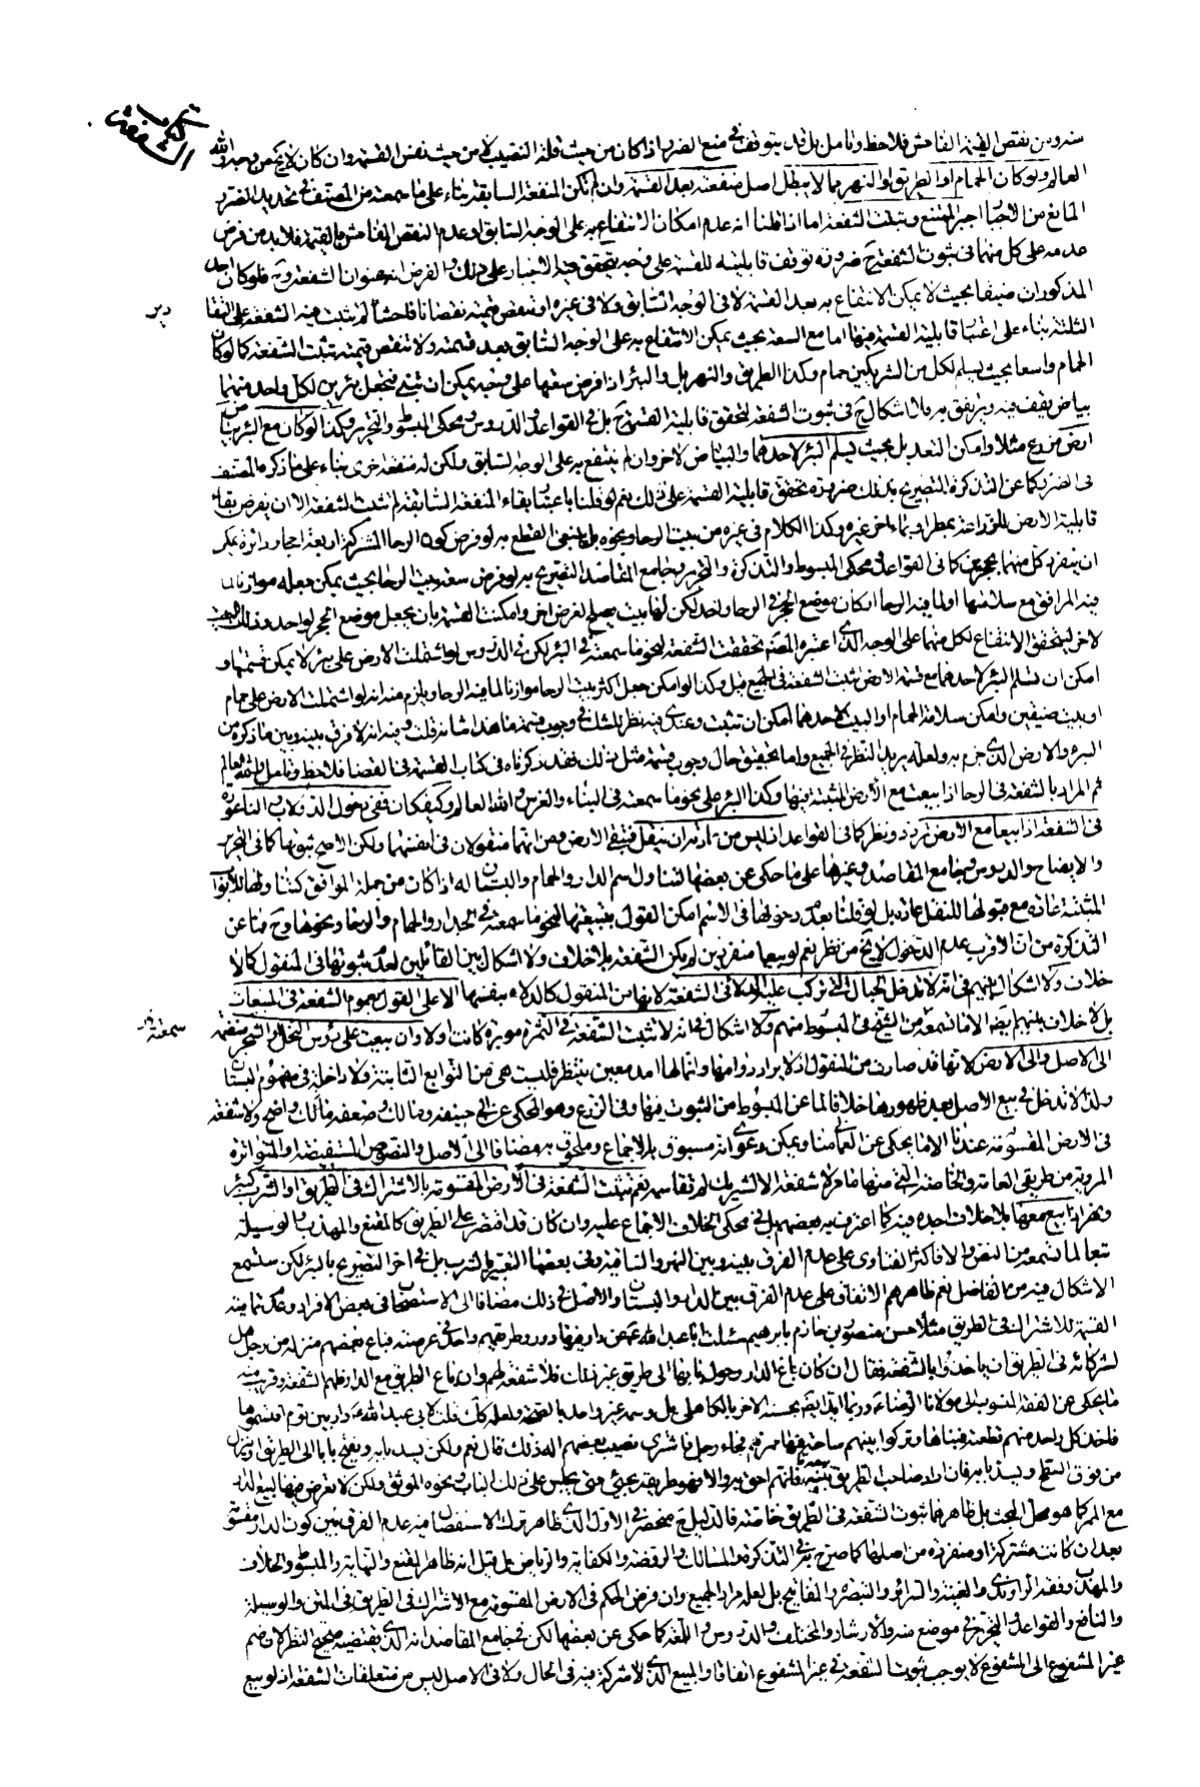 كتاب الشفعة
منه ومن نقص القيمة الفاحش فلاحظ وتأمل بل قد يتوقف في منع الضرر اذا كان من حيث قلة النصيب لا من حيث نفس القسمة وان كان لا يخ من وجه والله
العالم ولو كان الحمام او الطريق او النهر مما لا يبطل اصل منفعته بعد القسمة وان لم تكن المنفعة السابقة بناء على ما سمعته من المصنف في تحديد الضرر
المانع من الاجبار اجبر الممتنع وتثبت الشفعة اما اذا قلنا انه عدم امكان الانتفاع به على الوجه السابق او عدم النقص الفاحش بالقسمة فلا بد من فرض
عدمه على كل منهما في ثبوت الشفعة ح ضرورة توقف قابليته للقسمة على وجه يتحقق فيه الاجبار على ذلك و الفرض انه عنوان الشفعة وح فلو كان احد
المذكورات ضيقا بحيث لا يمكن الانتفاع به بعد القسمة لا في الوجه السابق ولا في غيره او تنقص قيمته نقصانا فاحشا لم تثبت فيه الشفعة على التفا
الثلثة بناء على اعتبار قابلية القسمة فيها اما مع السعة بحيث يمكن الانتفاع به على الوجه السابق بعد قسمته ولا تنقص قيمته تثبت الشفعة كما لو كان
الحمام واسعا بحيث يسلم لكل من الشريكين حمام وكذا الطريق والنهر بل والبئر اذا فرض سعتها على وجه يمكن ان تبنى فتجعل بئرين لكل واحد منهما
بياض يقف فيه ويرتفق به بلا اشكال ح في ثبوت الشفعة لتحقق قابلية القسمة ح بل في القواعد والدروس ومحكي المبسوط والتحرير وكذا لو كان مع البئر بياض
ارض مزرع مثلا وامكن التعديل بحيث يسلم البئر لاحدهما والبياض لاخر وان لم ينتفع به على الوجه السابق ولكن له منفعة اخرى بناء على ما ذكره المصنف
في الضرر كما عن التذكرة التصريح بذلك ضرورة تحقق قابلية القسمة على ذلك نعم لو قلنا باعتبار بقاء المنفعة السابقة لم تثبت الشفعة الا ان يفرض بقاء
قابلية الارض للزراعة بمطر او بماء اخر غيره وكذا الكلام في غيره من بيت الرحا ونحوه بل ينبغي القطع به لو فرض كون الرحا المشتركة اربعة احجار دائرة يمكن
ان ينفرد كل منهما بحجرين كما في القواعد ومحكي المبسوط والتذكرة والتحرير وجامع المقاصد التصريح به لو فرض سعة بيت الرحا بحيث يمكن جعله موازنا لما
فيه المرافق مع سلامتها او لما فيه الرحا او كان موضع الحجر في الرحا واحد لكن لها بيت يصلح لغرض اخر وامكنت القسمة بان يجعل موضع الحجر لواحد وذلك البيت
لاخر ليتحقق الانتفاع لكل منهما على الوجه الذي اعتبره المصنف تحققت الشفعة لنحو ما سمعته في البئر لكن في الدروس لو اشتملت الارض على بئر لا يمكن قسمتها و
امكن ان تسلم البئر لاحدهما مع قسمة الارض تثبت الشفعة في الجميع قيل وكذا لو امكن جعل اكثر بيت الرحا موازنا لما فيه الرحا ويلزم منه انه لو اشتملت الارض على حمام
او بيت ضيقين وامكن سلامة الحمام او البيت لاحدهما امكن ان تثبت وعندي فيه نظر للشك في وجوب قسمة ما هذا شانه قلت وفيه انه لا فرق بينه وبين ما ذكره من
البئر والارض الذي جزم به ولعله يريد النظر في الجميع واما تحقيق حال وجوب قسمة مثل ذلك فقد ذكرناه في كتاب القسمة في القضا فلاحظ وتأمل والله العالم
ثم المراد بالشفعة في الرحا اذا بيعت مع الارض المثبتة فيها وكذا البئر على نحو ما سمعته في البناء والغرس والله العالم وكيف كان ففي دخول الدولاب والناعورة
في الشفعة اذا بيعا مع الارض تردد ونظر كما في القواعد اذ ليس من عادته ان ينقل فيتبع الارض ومن انهما منقولان في انفسهما ولكن الاصح ثبوتها كما في التحرير
والايضاح والدروس وجامع المقاصد وغيرها على ما حكي عن بعضها لتناول اسم الدار والحمام والبستان له اذا كان من جملة المرافق كتناولها للابواب
المثبتة عادة مع قبولها للنقل عادة بل لو قلنا بعدم دخولها في الاسم امكن القول بتبعيتها لنحو ما سمعته في الجدار والحمام والرحا ونحوها وح فما عن
التذكرة من ان الاقرب عدم الدخول لا يخ من نظر نعم لو بيعا منفردين لم يكن الشفعة بلا خلاف ولا اشكال بين القائلين بعدم ثبوتها في المنقول كما لا
خلاف ولا اشكال بينهم في انه لا تدخل الحبال التي تركب عليها الدلاء في الشفعة لانها من المنقول كالدلاء بنفسها الا على القول بعموم الشفعة في المبيعات
بل لا خلاف بينهم ايضا الا ما تسمعه من الشيخ في المبسوط منهم ولا اشكال في انه لا تثبت الشفعة في الثمرة مؤبرة كانت او لا وان بيعت على رؤس النخل او الشجر منضمة
الى الاصل والى الارض لانها قد صارت من المنقول اذ لا يراد دوامها وانما لها امد معين ينتظر فليست هي من التوابع الثابتة ولا داخلة في مفهوم البستان
ولذا لا تدخل في بيع الاصل بعد ظهورها خلافا لما عن المبسوط من الثبوت فيها وفي الزرع وهو المحكي عن ابي حنيفة ومالك وضعفه واضح ولا شفعة
في الارض المقسومة عندنا الا ما يحكى عن العماني منا ويمكن دعوى انه مسبوق بالاجماع وملحوق به مضافا الى الاصل والنصوص المستفيضة او المتواترة
المروية من طريقي العامة والخاصة التي منها ما مر لا شفعة الا لشريك لم تقاسمه نعم تثبت الشفعة في الارض المقسومة بالاشتراك في الطريق او الشرب كبئر
ونهر اذا بيع معها بلا خلاف اجده فيه كما اعترف به بعضهم بل في محكي الخلاف الاجماع عليه وان كان قد اقتصر على الطريق كالمقنع والمهذب والوسيلة
تبعا لما تسمعه من النص والا فاكثر الفتاوى على عدم الفرق بينه وبين النهر والساقية وفي بعضها التعبير بالشرب بل في اخر التصريح بالبئر لكن ستسمع
الاشكال فيه من الفاضل نعم ظاهرهم الاتفاق على عدم الفرق بين الدار والبستان والاصل في ذلك مضافا الى الاستصحاب في بعض الافراد وعدم تمامية
القسمة للاشتراك في الطريق مثلا حسن منصور بن حازم بابراهيم سئلت ابا عبد الله ع عن دار فيها دور وطريقهم واحد في عرصة فباع بعضهم منزله من رجل هل
لشركائه في الطريق ان ياخذوا بالشفعة فقال ان كان باع الدار وحول بابها الى طريق غير ذلك فلا شفعة لهم وان باع الطريق مع الدار فلهم الشفعة وقريب منه
ما يحكى عن الفقه المنسوب الى مولانا الرضا ع وربما ايد ايضا بحسنه الاخر بالكاهلي بل وسمه غير واحد بالصحة ولعله كك قلت لابي عبد الله ع دار بين قوم اقتسموها
فاخذ كل واحد منهم قطعة فبناها وتركوا بينهم ساحة فيها ممرهم فجاء رجل فاشترى نصيب بعضهم اله ذلك قال نعم ولكن يسد بابه ويفتح بابا الى الطريق او ينزل
من فوق السطح ويسد بابه فان اراد صاحب الطريق بيعه فانهم احق به والا فهو طريقه يجيئ حتى يجلس على ذلك الباب ونحوه الموثق ولكن لا تعرض فيهما لبيع الدار
مع الممر كما هو محل البحث بل ظاهرهما ثبوت الشفعة في الطريق خاصة فالدليل ح منحصر في الاول الذي ظاهر ترك الاستفصال فيه عدم الفرق بين كون الدار مقسومة
بعد ان كانت مشتركة او منفردة من اصلها كما صرح به في التذكرة والمسالك والروضة والكفاية والرياض بل قيل انه ظاهر المقنع والنهاية والمبسوط والخلاف
والمهذب وفقه الراوندي والغنية والسرائر والتبصرة والمفاتيح بل لعله مراد الجميع وان فرض الحكم في الارض المقسومة مع الاشتراك في الطريق في المتن والوسيلة
والنافع والقواعد والتحرير في موضع منه والارشاد والمختلف والدروس واللمعة كما حكي عن بعضها لكن في جامع المقاصد انه الذي يقتضيه صحيح النظر لان ضم
غير المشفوع الى المشفوع لا يوجب ثبوت الشفعة في غير المشفوع اتفاقا والمبيع الذي لا شركة فيه في الحال ولا في الاصل ليس من متعلقات الشفعة اذ لو بيع